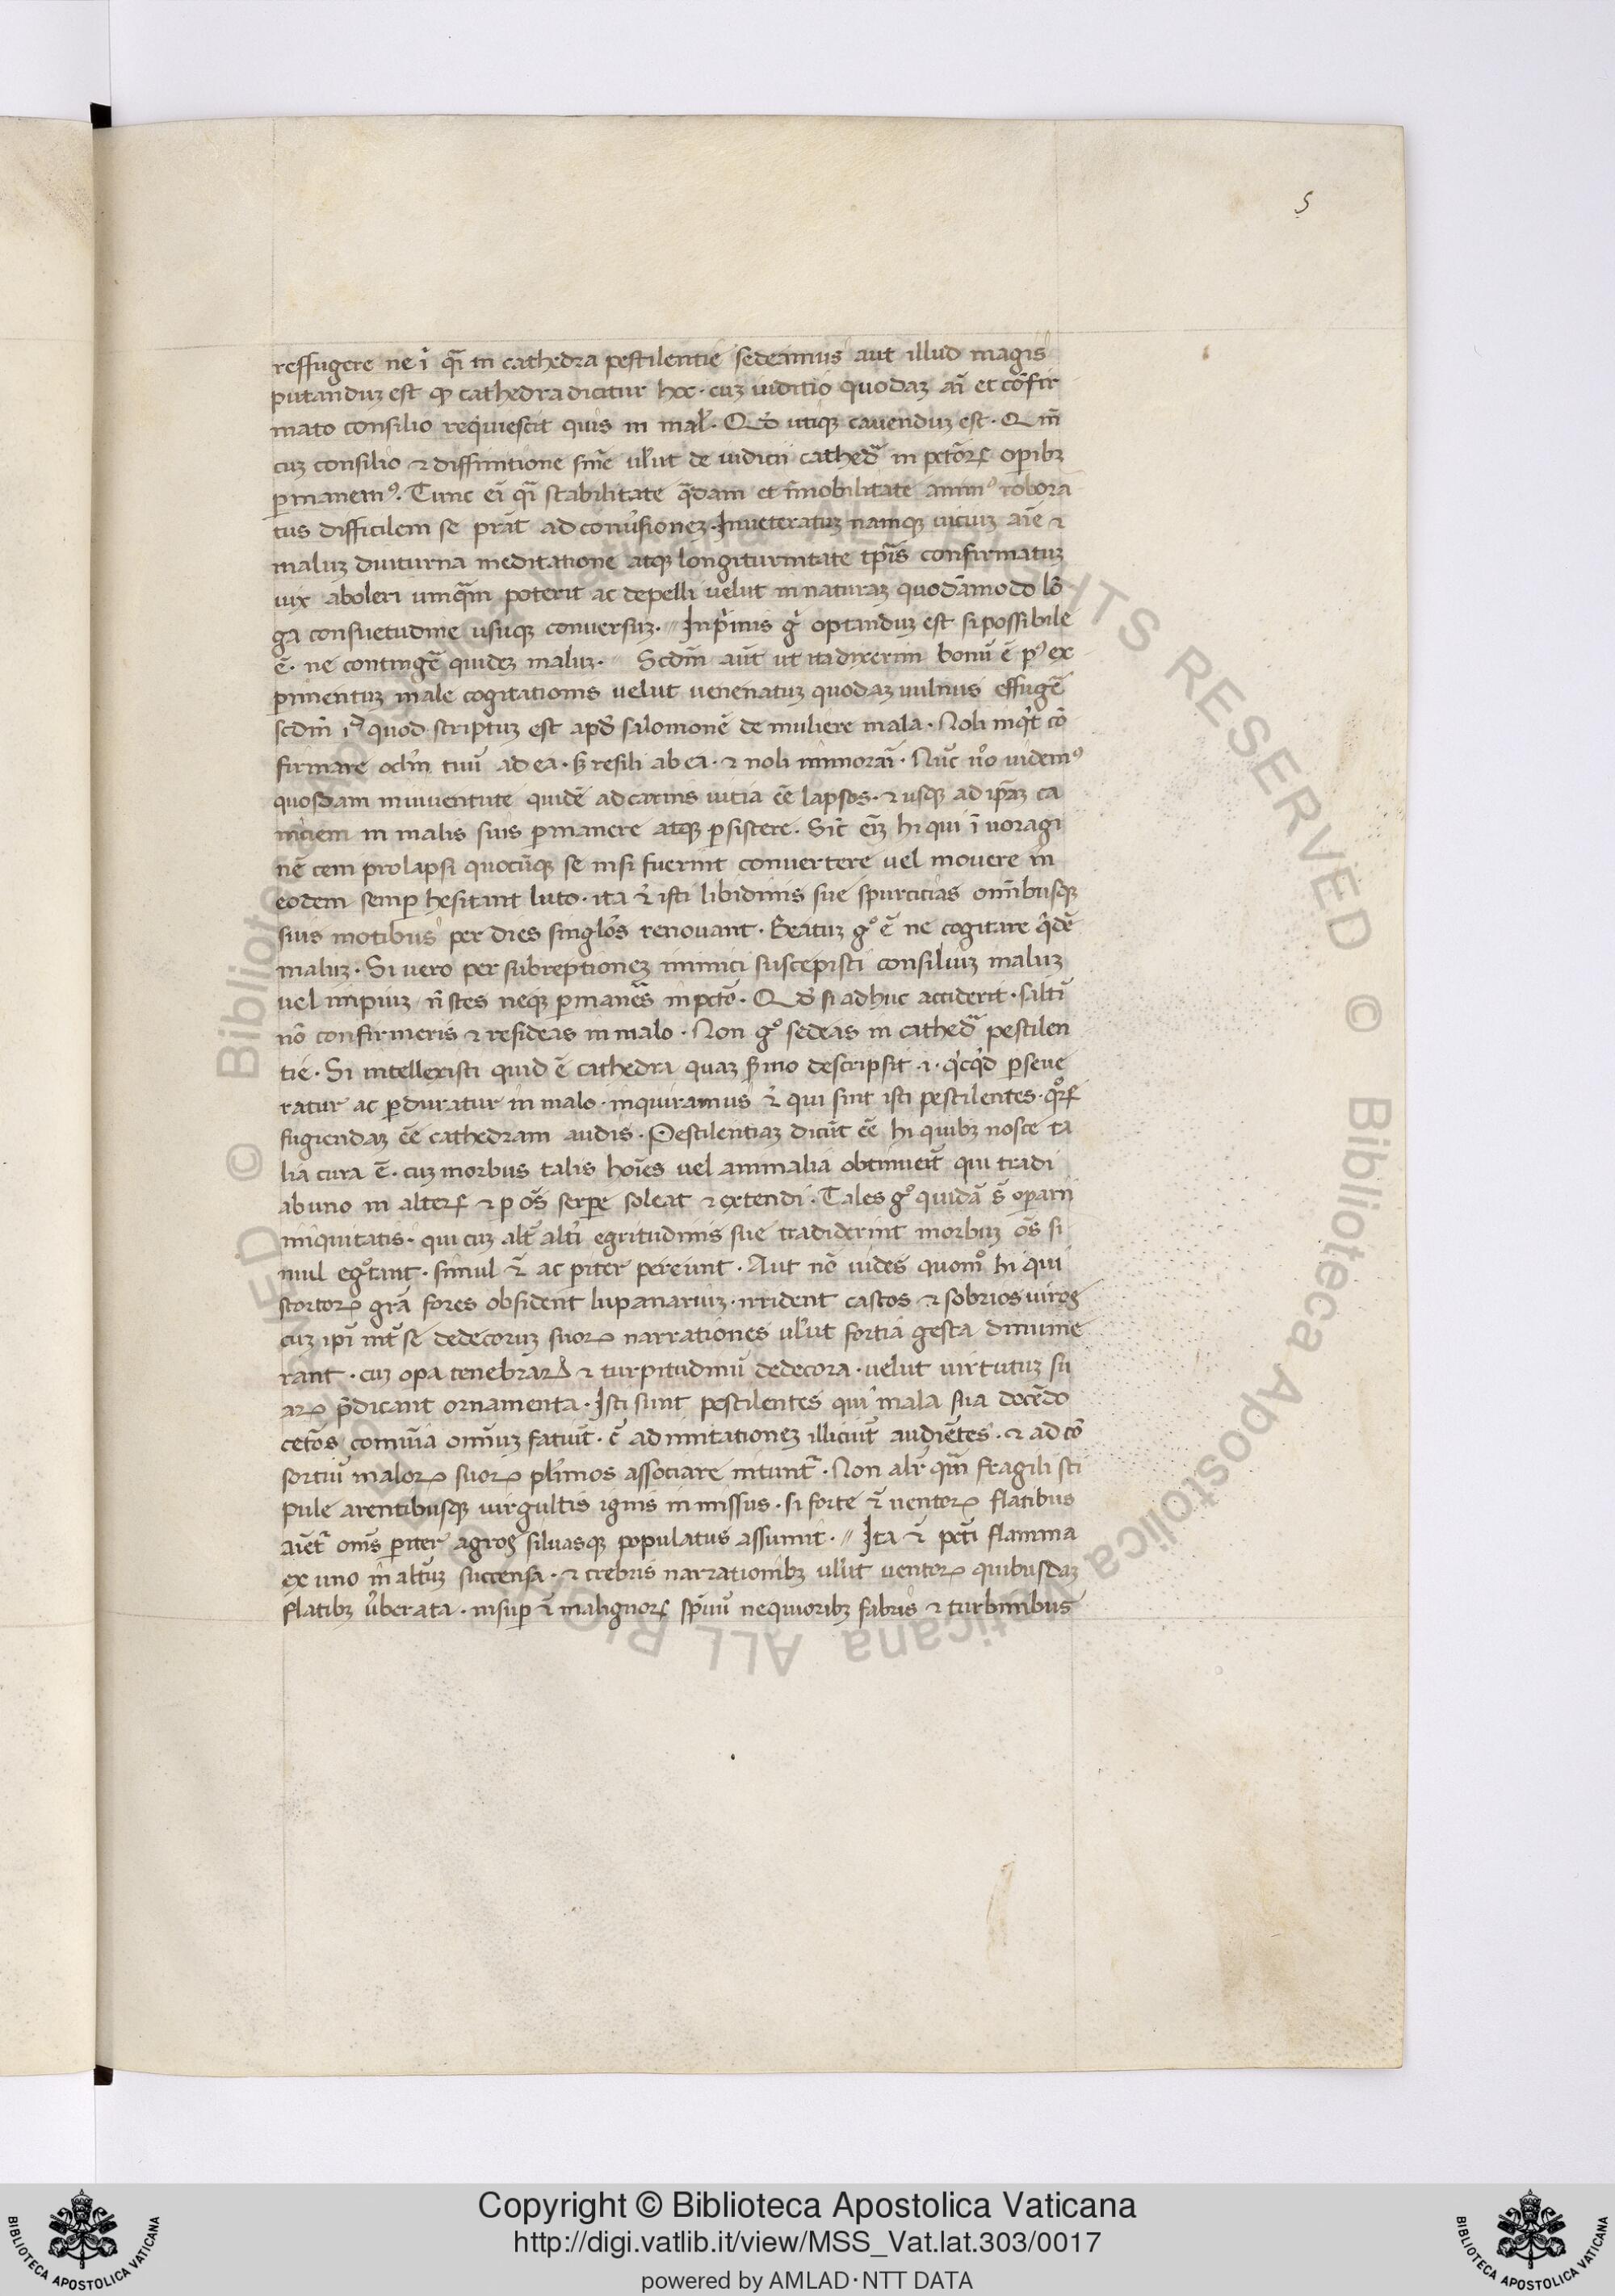 5
reffugere ne ī qȓ in cathedra pestilentie sedeamus aut illud magis
putanduz est ꝙ cathedra dicitur hec · cuz iuditio quodaz ai̅ et co̅fir
mato consilio requiescit quis in mal̓ · Qd̓ utiqꝫ cauenduz est · Qm̅
cuz consilio ⁊ diffinitione sn̅ie ul̓ut de iuditii cathedᷓ in pctōrꝝ opibꝫ
ꝑmanemꝰ. Tunc ei̅ qȓ stabilitate qᷓdam et īmobilitate animꝰ robora
tus difficilem se prāt ad conu̓sionez · Inueteratuz namqꝫ uiciuz aīe ⁊
maluz diuturna meditatione atqꝫ longiturnitate tp̅is confirmatuz
uix aboleri umqᷓm poterit ac depelli uelut in naturaz quoda̅modo lo̅
ga consuetudine usuqꝫ conuersuz · // Inp̓mis gͥ optanduz est si possibile
ē · ne continge̅ quidez maluz · Scdm̅ aut̅ ut ita dixerim bonu̅ ē pꝰ ex
ꝑimentuz male cogitationis uelut uenenatuz quodaz uulnus effuge̅
scdm̅ iᵈ quod scriptuz est apd̓ salomonē de muliere mala · Noli inqͥt co̅
firmare ocl̓m tuu̅ ad ea · sꝫ resili ab ea · ⁊ noli inmorai̅ · Nuc̅ uͦo uidemꝰ
quosdam in iuuentute quide̅ ad carnis uitia ēe lapsos · ⁊ usqꝫ ad ip̅az ca
niciem in malis suis ꝑmanere atqꝫ ꝑsistere · Sic̅ eīz hi qui ī uoragi
ne̅ ceni prolapsi quocūqꝫ se nisi fuerint conuertere uel mouere in
eodem semꝑ hesitant luto · ita ⁊̓ isti libidinis sue spurcicias omnibusqꝫ
suis motibus per dies singl̓os renouant · Beatuz gͦ ē ne cogitare qͥde̅
maluz · Si uero per subreptionez inimici suscepisti consiliuz maluz
uel impiuz n̅ stes neqꝫ ꝑmanea̅s in pctō · Qd̓ si adhuc acciderit · salti̅
no̅ confirmeris ⁊ resideas in malo · Non gͦ sedeas in cathedᷓ pestilen
tie · Si intellexisti quid ē cathedra quaz sꝫmo descripsit · i · qͥcqͥd ꝑseue
ratur ac ꝑduratur in malo · inquiramus ⁊̓ qui sint isti pestilentes · qͦrꝝ
fugiendaz ēe cathedram audis · Pestilentiaz dicūt ēe hi quibꝫ nosce ta
lia cura ē · cuz morbus talis hoīes uel animalia obtinuerit̅ qui tradi
ab uno in alterꝝ ⁊ ꝑ oēs serꝑe soleat ⁊ extendi · Tales gͦ quida̅ s̅ oꝑarii
iniquitatis · qui cuz alt̓ alt̓i egritudinis sue tradiderint morbuz oēs si
mul egͦtant · simul ⁊̅ ac ꝑiter pereunt · Aut no̅ uides quomͦ hi qui
scortorꝝ gra̅ fores obsident lupanariuz · irrident castos ⁊ sobrios uiros
cuz ipi̅ int̓ se dedecoruz suorꝝ narrationes ul̓ut fortia gesta dinume
rant · cuz oꝑa tenebrarꝝ ⁊ turpitudinu̅ dedecora · uelut uirtutuz su
arꝝ p̅dicant ornamenta · Isti sunt pestilentes qui mala sua doce̅do
cetōs comu̅ia omniuz fatiūt · ⁊̅ ad imitationez illiciūt audie̅tes · ⁊ ad co̅
sortiu̅ malorꝝ suorꝝ pl̓imos associare intuntᷓ · Non alr̅ qᷓm fragili sti
pule arentibusqꝫ uirgultis ignis inmissus · si forte ⁊̅ uentorꝝ flatibus
aiet̅ᷓ om̅s ꝑiter agros siluasqꝫ populatus assumit · // Ita ⁊̅ pcti̅ flamma
ex uno in alt̓uz succensa · ⁊ crebris narrationibꝫ ul̓ut uentorꝝ quibusdaz
flatibꝫ u̓berata · insuꝑ ⁊̅ malignorꝝ spi̅uu̅ nequioribꝫ fabris ⁊ turbinibus
Copyright © Biblioteca Apostolica Vaticana
http://digi.vatlib.it/view/MSS_Vat.lat.303/0017
powered by AMLAD · NTT DATA
BIBLIOTECA APOSTOLICA VATICANA
BIBLIOTECA APOSTOLICA VATICANA